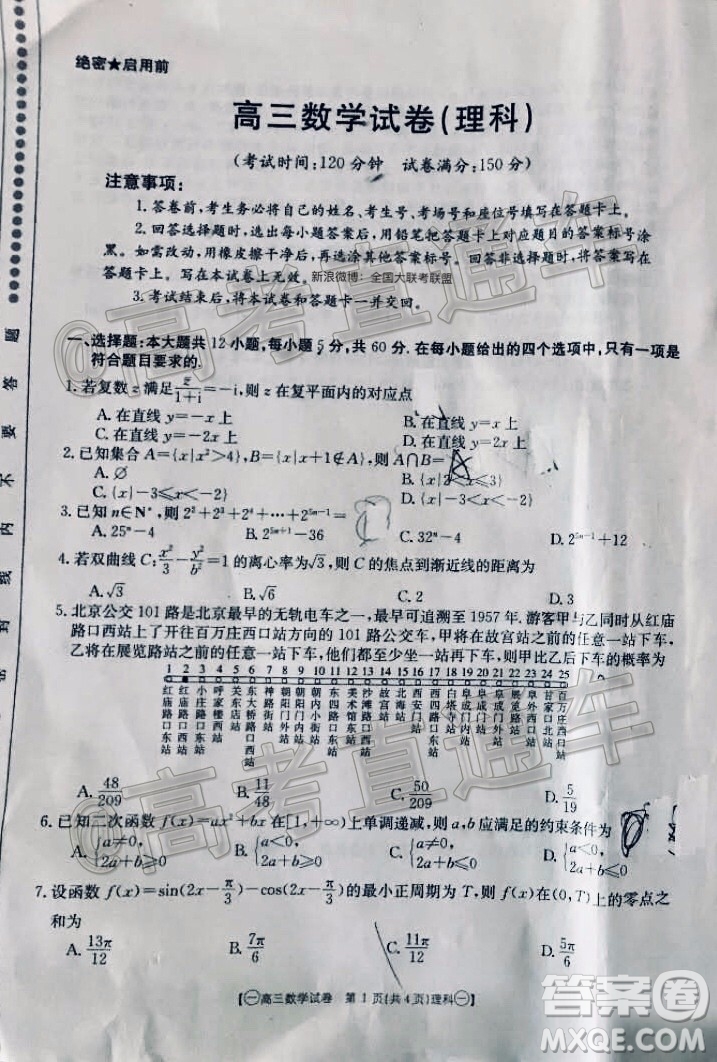 绝密★启用前
高三数学试卷(理科)
(考试时间:120分钟 试卷满分:150分)
注意事项:
1.答卷前,考生务必将自己的姓名、考生号、考场号和座位号填写在答题卡上。
2.回答选择题时,选出每小题答案后,用铅笔把答题卡上对应题目的答案标号涂
黑。如需改动,用橡皮擦干净后,再选涂其他答案标号。回答非选择题时,将答案写在
答题卡上。写在本试卷上无效。
新浪微博:全国大联考联盟
3.考试结束后,将本试卷和答题卡一并交回。
@高考直通车
一、选择题:本大题共12小题,每小题5分,共60分.在每小题给出的四个选项中,只有一项是
符合题目要求的.
1.若复数z满足z/(1+i)=-i,则z在复平面内的对应点
A.在直线y=-x上 B.在直线y=x上
C.在直线y=-2x上 D.在直线y=2x上
2.已知集合A={x|x²>4},B={x|x+1∉A},则A∩B=
A.∅ B.{x|2<x≤3}
C.{x|-3≤x<-2}
3.已知n∈N*,则2²+2³+2⁴+…+2⁵ⁿ⁻¹=
A.25ⁿ-4 B.2⁵ⁿ⁺¹-36 C.32ⁿ-4 D.2⁵ⁿ⁻¹+12
4.若双曲线C:x²/3-y²/b²=1的离心率为√3,则C的焦点到渐近线的距离为
A.√3 B.√6 C.2 D.3
5.北京公交101路是北京最早的无轨电车之一,最早可追溯至1957年.游客甲与乙同时从红庙
路口西站上了开往百万庄西口站方向的101路公交车,甲将在故宫站之前的任意一站下车,
乙将在展览路站之前的任意一站下车,他们都至少坐一站再下车,则甲比乙后下车的概率为
1 2 3 4 5 6 7 8 9 10 11 12 13 14 15 16 17 18 19 20 21 22 23 24 25
A.48/209 B.11/48 C.50/209 D.5/19
6.已知二次函数f(x)=ax²+bx在[1,+∞)上单调递减,则a,b应满足的约束条件为
A.{a≠0, 2a+b≥0 B.{a<0, 2a+b≤0 C.{a<0, 2a+b≥0 D. 2a+b≤0
7.设函数f(x)=sin(2x-π/3)-cos(2x-π/3)的最小正周期为T,则f(x)在(0,T)上的零点之
和为
A.13π/12 B.7π/6 C.11π/12 D.5π/6
【㊀高三数学试卷 第1页(共4页)理科㊀】
@高考直通车
答案圈
MXQE.COM
题
答
要
不
内
线
封